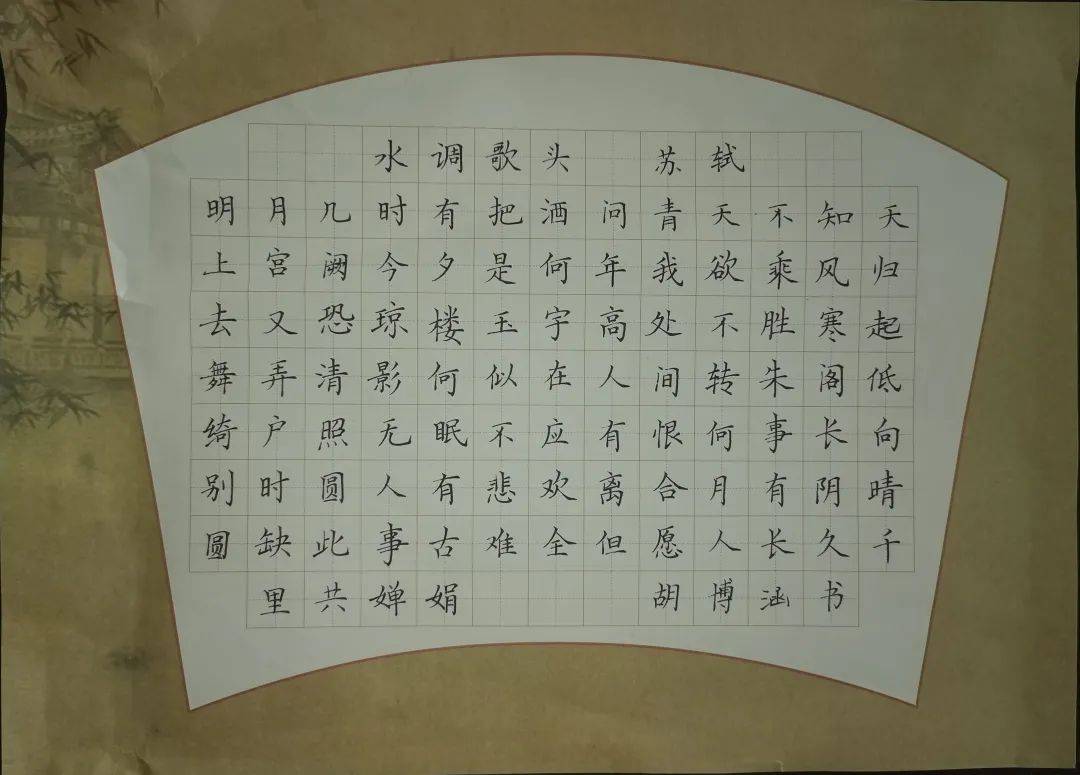 水调歌头 苏轼
明月几时有把酒问青天不知天
上宫阙今夕是何年我欲乘风归
去又恐琼楼玉宇高处不胜寒起
舞弄清影何似在人间转朱阁低
绮户照无眠不应有恨何事长向
别时圆人有悲欢离合月有阴晴
圆缺此事古难全但愿人长久千
里共婵娟 胡博涵书